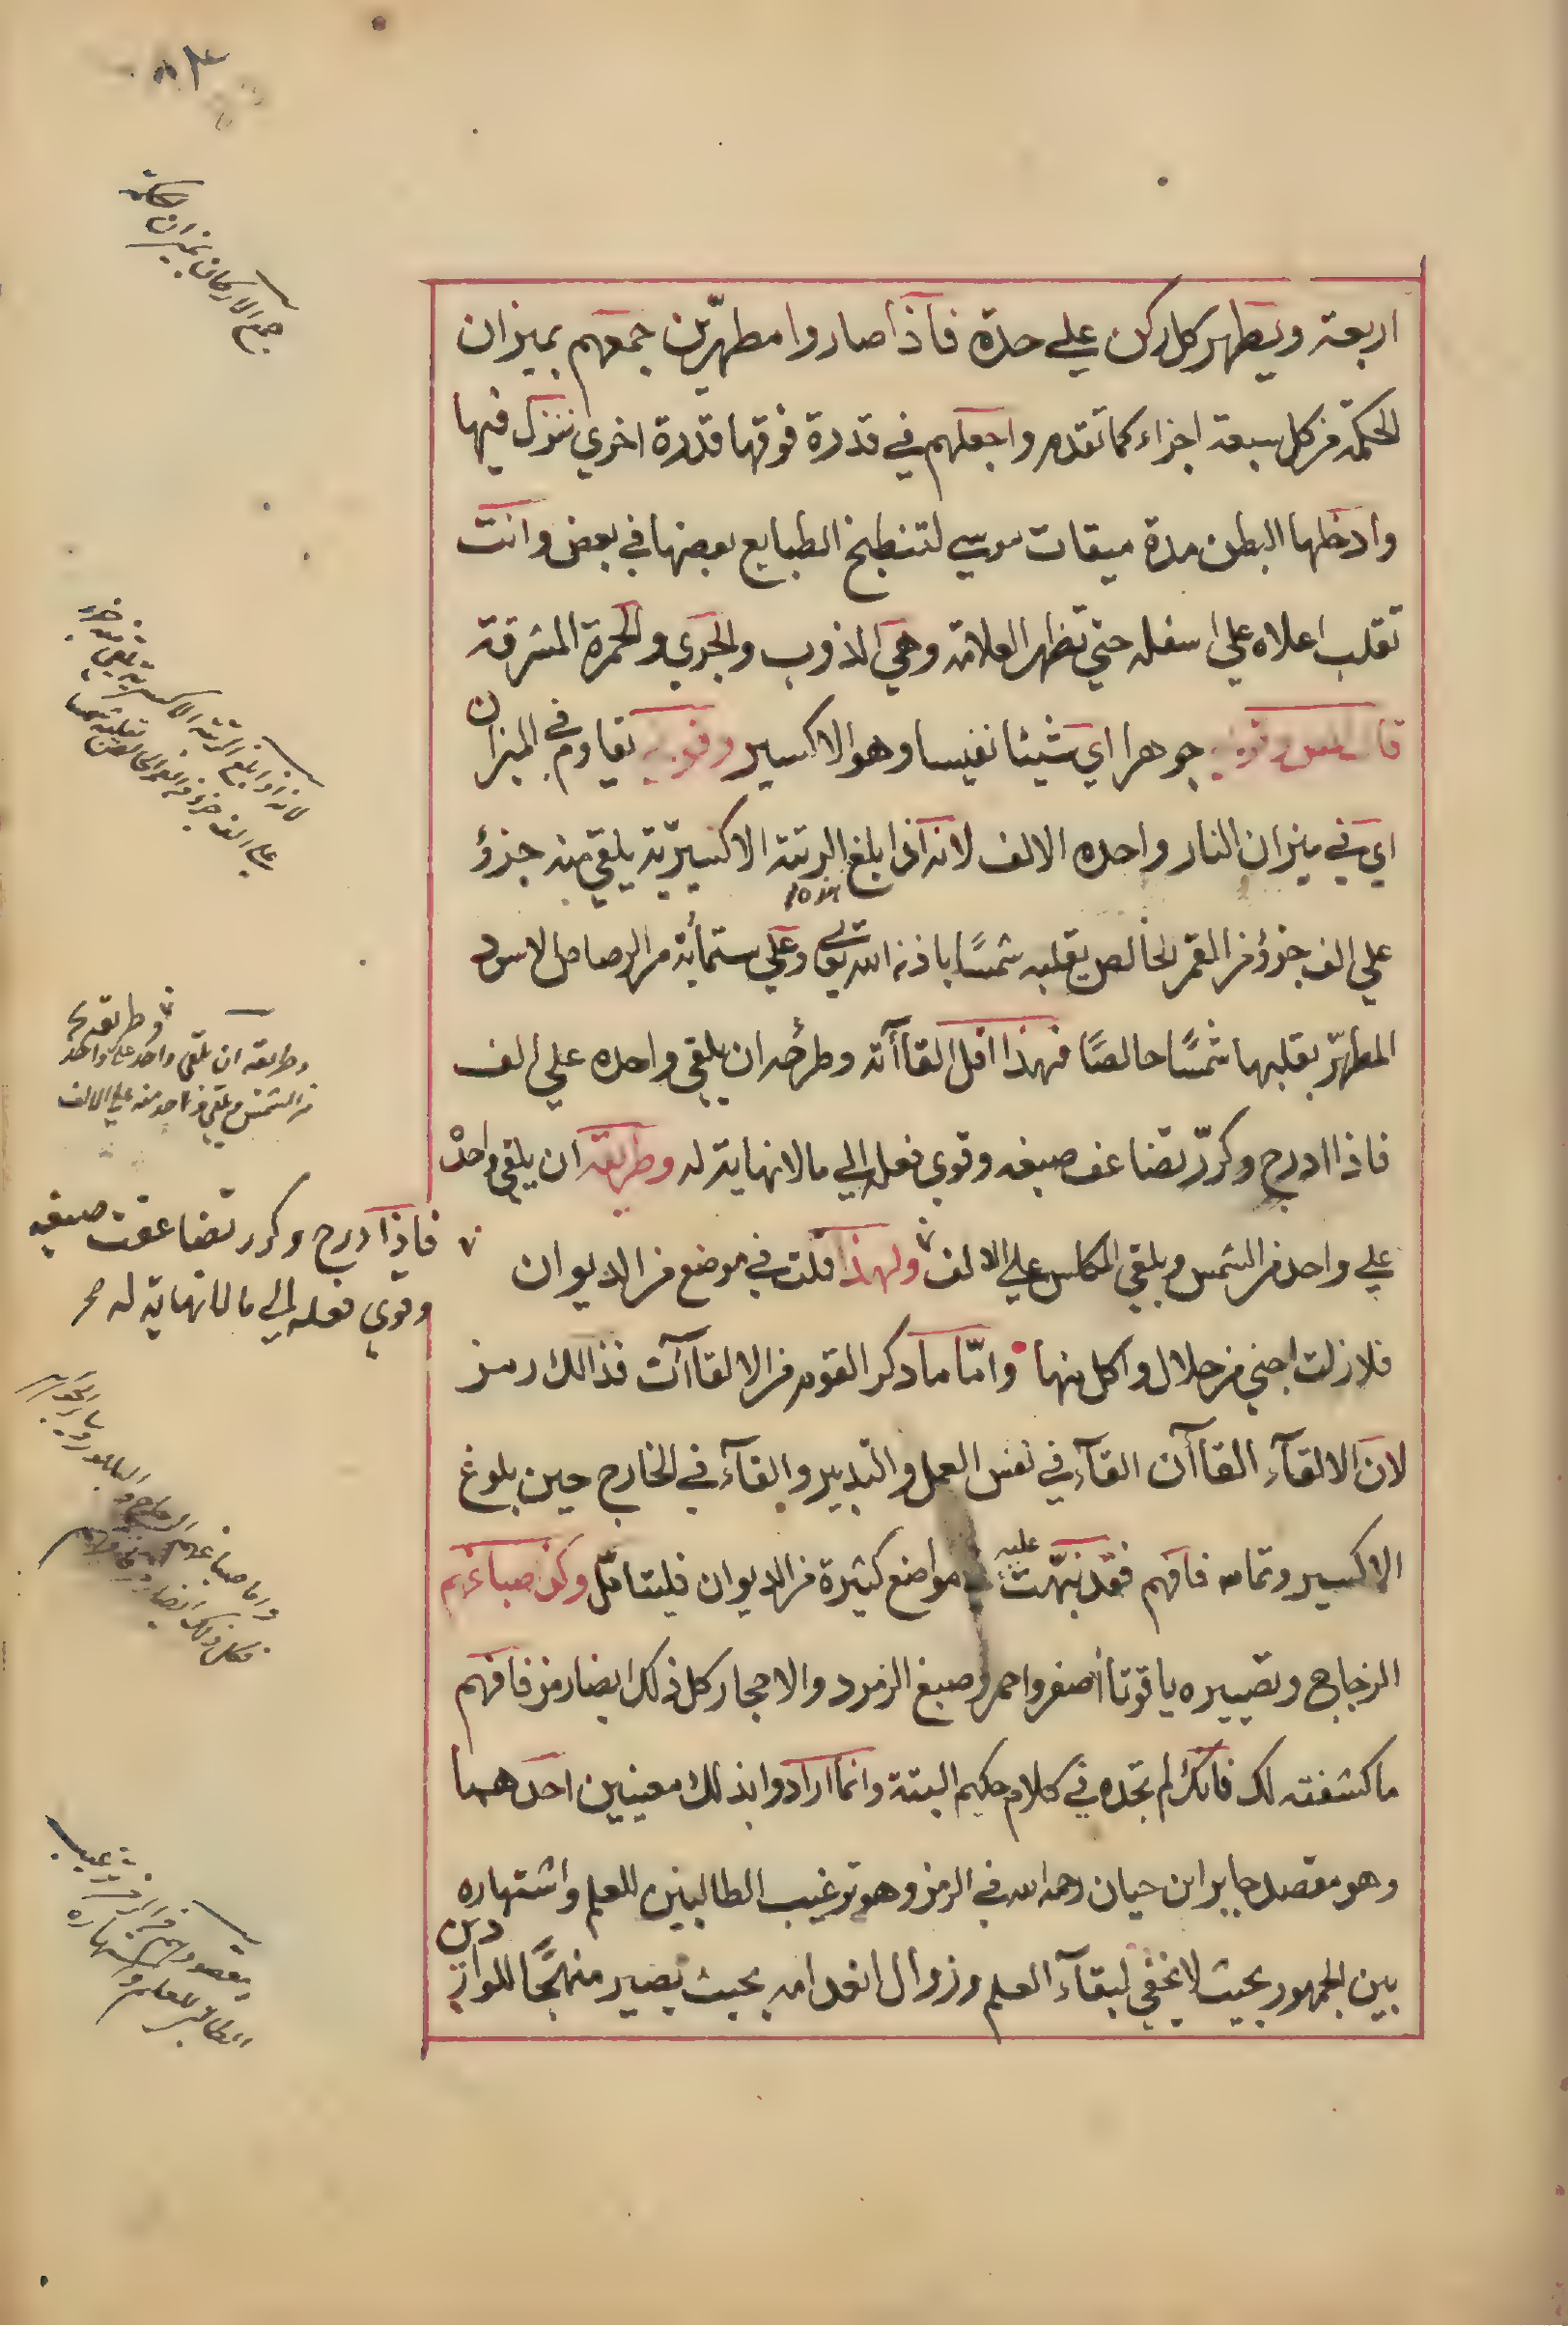 ٨٣
اربعة ويطهر كل ركن على حدة فاذا صاروا مطهّرين جمعهم بميزان
الحكمة من كل سبعة اجزاء كما تقدم واجعلهم في قدرة فوقها قدرة اخري تنزل فيها
وادخلها البطن مدة ميقات موسي لتنطبخ الطبايع بعضها في بعض وانت
تقلب اعلاه علي اسفله حتي تظهر العلامة وهي الذوب والجري والحمرة المشرقة
جوهرا اي شيئا نفيسا وهو الاكسير وقوله تقاوم في الميزان
اي في ميزان النار واحده الالف لانه اذا بلغ الرتبة الاكسيرية يلقي منه جزؤ
علي الف جزؤ من القمر الخالص يقلبه شمسًا باذن الله تعالي وعلي ستمائة من الرصاص الاسود
المطهّر يقلبها شمسًا خالصًا فهذا اقل القاآته وطرحه ان يلقي واحده علي الف
فاذا ادرج وكرّر تضاعف صبغه وقوي فعله الي مالا نهاية له وطريقه ان يلقي واحدْ
علي واحد من الشمس ويلقي المكلس علي الالف ولهذا قلت في موضع من الديوان
فلا زلت اجني من حلال واكل منها وامّا ما ذكر القوم من الالقاآت فذالك رمز
لان الالقآء القاآن القآء في نفس العمل والتدبير والقآء في الخارج حين بلوغ
الاكسير وتمامه فافهم فقد نبّهت عليه في مواضع كثيرة من الديوان فليتامّل وكذ صباغهم
الزجاج وتصييره ياقوتا أصفر واحمر وصبغ الزمرد والاحجار كل ذلك ايضا رمز فافهم
ما كشفته لك فانك لم تجده في كلام حكيم البتة وانما ارادوا بذلك معنيين احدهما
وهو مقصد جابر ابن حيان رحمه الله في الرمز وهو ترغيب الطالبين للعلم واشتهاره
بين الجمهور بحيث لا يخفي لبقآء العلم وزوال انعدامه بحيث يصير منهجًا للواردين
جمع الاركان بميزان الحكمة
لانه اذا بلغ الرتبة الاكسيرية يلقي منه جزء
علي الف جزؤ من القمر الخالص يقلبه شمسا
وطريقه
وطريقه ان يلقي واحد علي واحد
من الشمس ويلقي من واحد منه علي الالف
فاذا ادرج وكرر تضاعفت صبغه
وقوي فعله الي مالا نهاية له صح
واما صباغهم الزجاج
فكل ذلك ايضا رمز
الطالبين للعلم واشتهاره